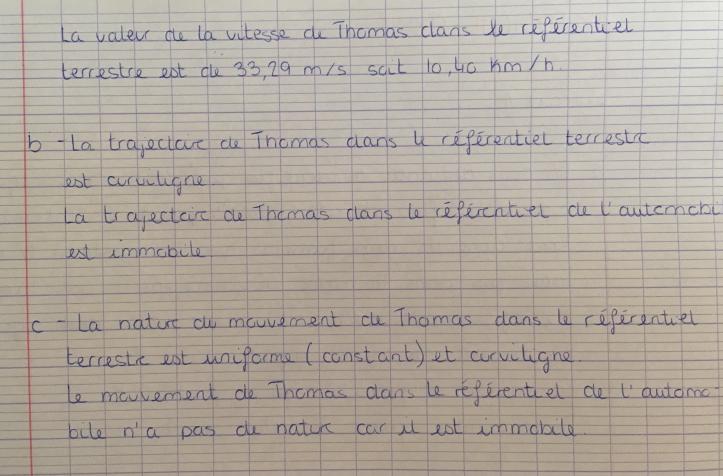 La valeur de la vitesse de Thomas dans le référentiel
terrestre est de 33,29 m/s soit 10,40 km/h.
b - La trajectoire de Thomas dans le référentiel terrestre
est curviligne.
La trajectoire de Thomas dans le référentiel de l'automobi
est immobile
c - La nature du mouvement de Thomas dans le référentiel
terrestre est uniforme (constant) et curviligne.
Le mouvement de Thomas dans le référentiel de l'automo-
bile n'a pas de nature car il est immobile.